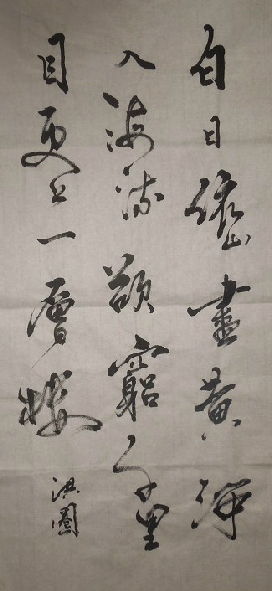 白日依山盡黄河
入海流欲窮千里
目更上一層樓
洪圖